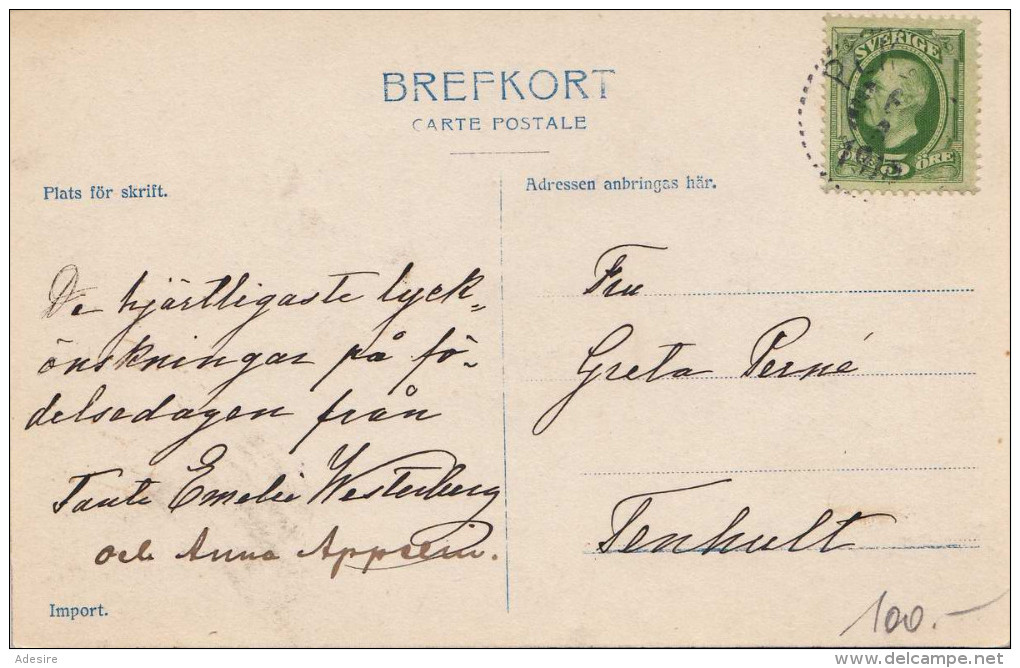 BREFKORT
CARTE POSTALE
SVERIGE
5 ÖRE
Plats för skrift.
De hjärtligaste lyck-
önskningar på fö-
delsedagen från
Tante Emelie Westerberg
och Anna
Import.
Adressen anbringas här.
Fru
Greta Perné
Tenhult
100.-
Adesire
www.delcampe.net